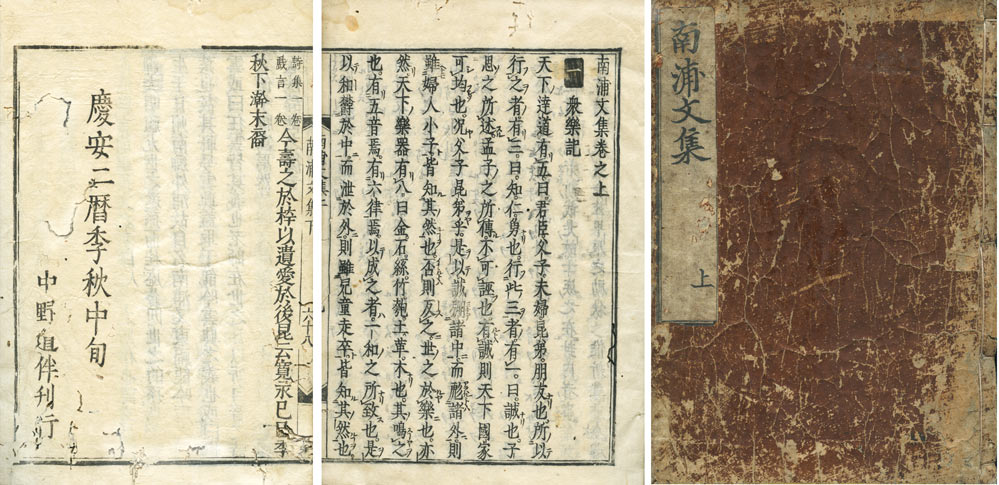 南浦文集
上
南浦文集卷之上
衆樂記
天下達道有五曰君臣父子夫婦昆弟朋友也所以
行之者有三曰知仁勇也行此三者有一曰誠也子
思之所述孟子之所傳不可誣也有誠則天下國家
可均也況父子昆弟乎是以誠諸中而形諸外則
雖婦人小子皆知其然也否則反之世之於樂也亦
然天下樂器有八曰金石絲竹匏土革木也其鳴之
也有五音焉有六律焉以成之者一和之所致也是
以和欝於中而泄於外則雖兒童走卒皆知其然也
詩集一卷
戯言一卷
今壽之於梓以遺愛於後昆云寛永己巳季
秋下澣末裔
慶安二暦季秋中旬
中野道伴刊行
南浦文集下
六十八